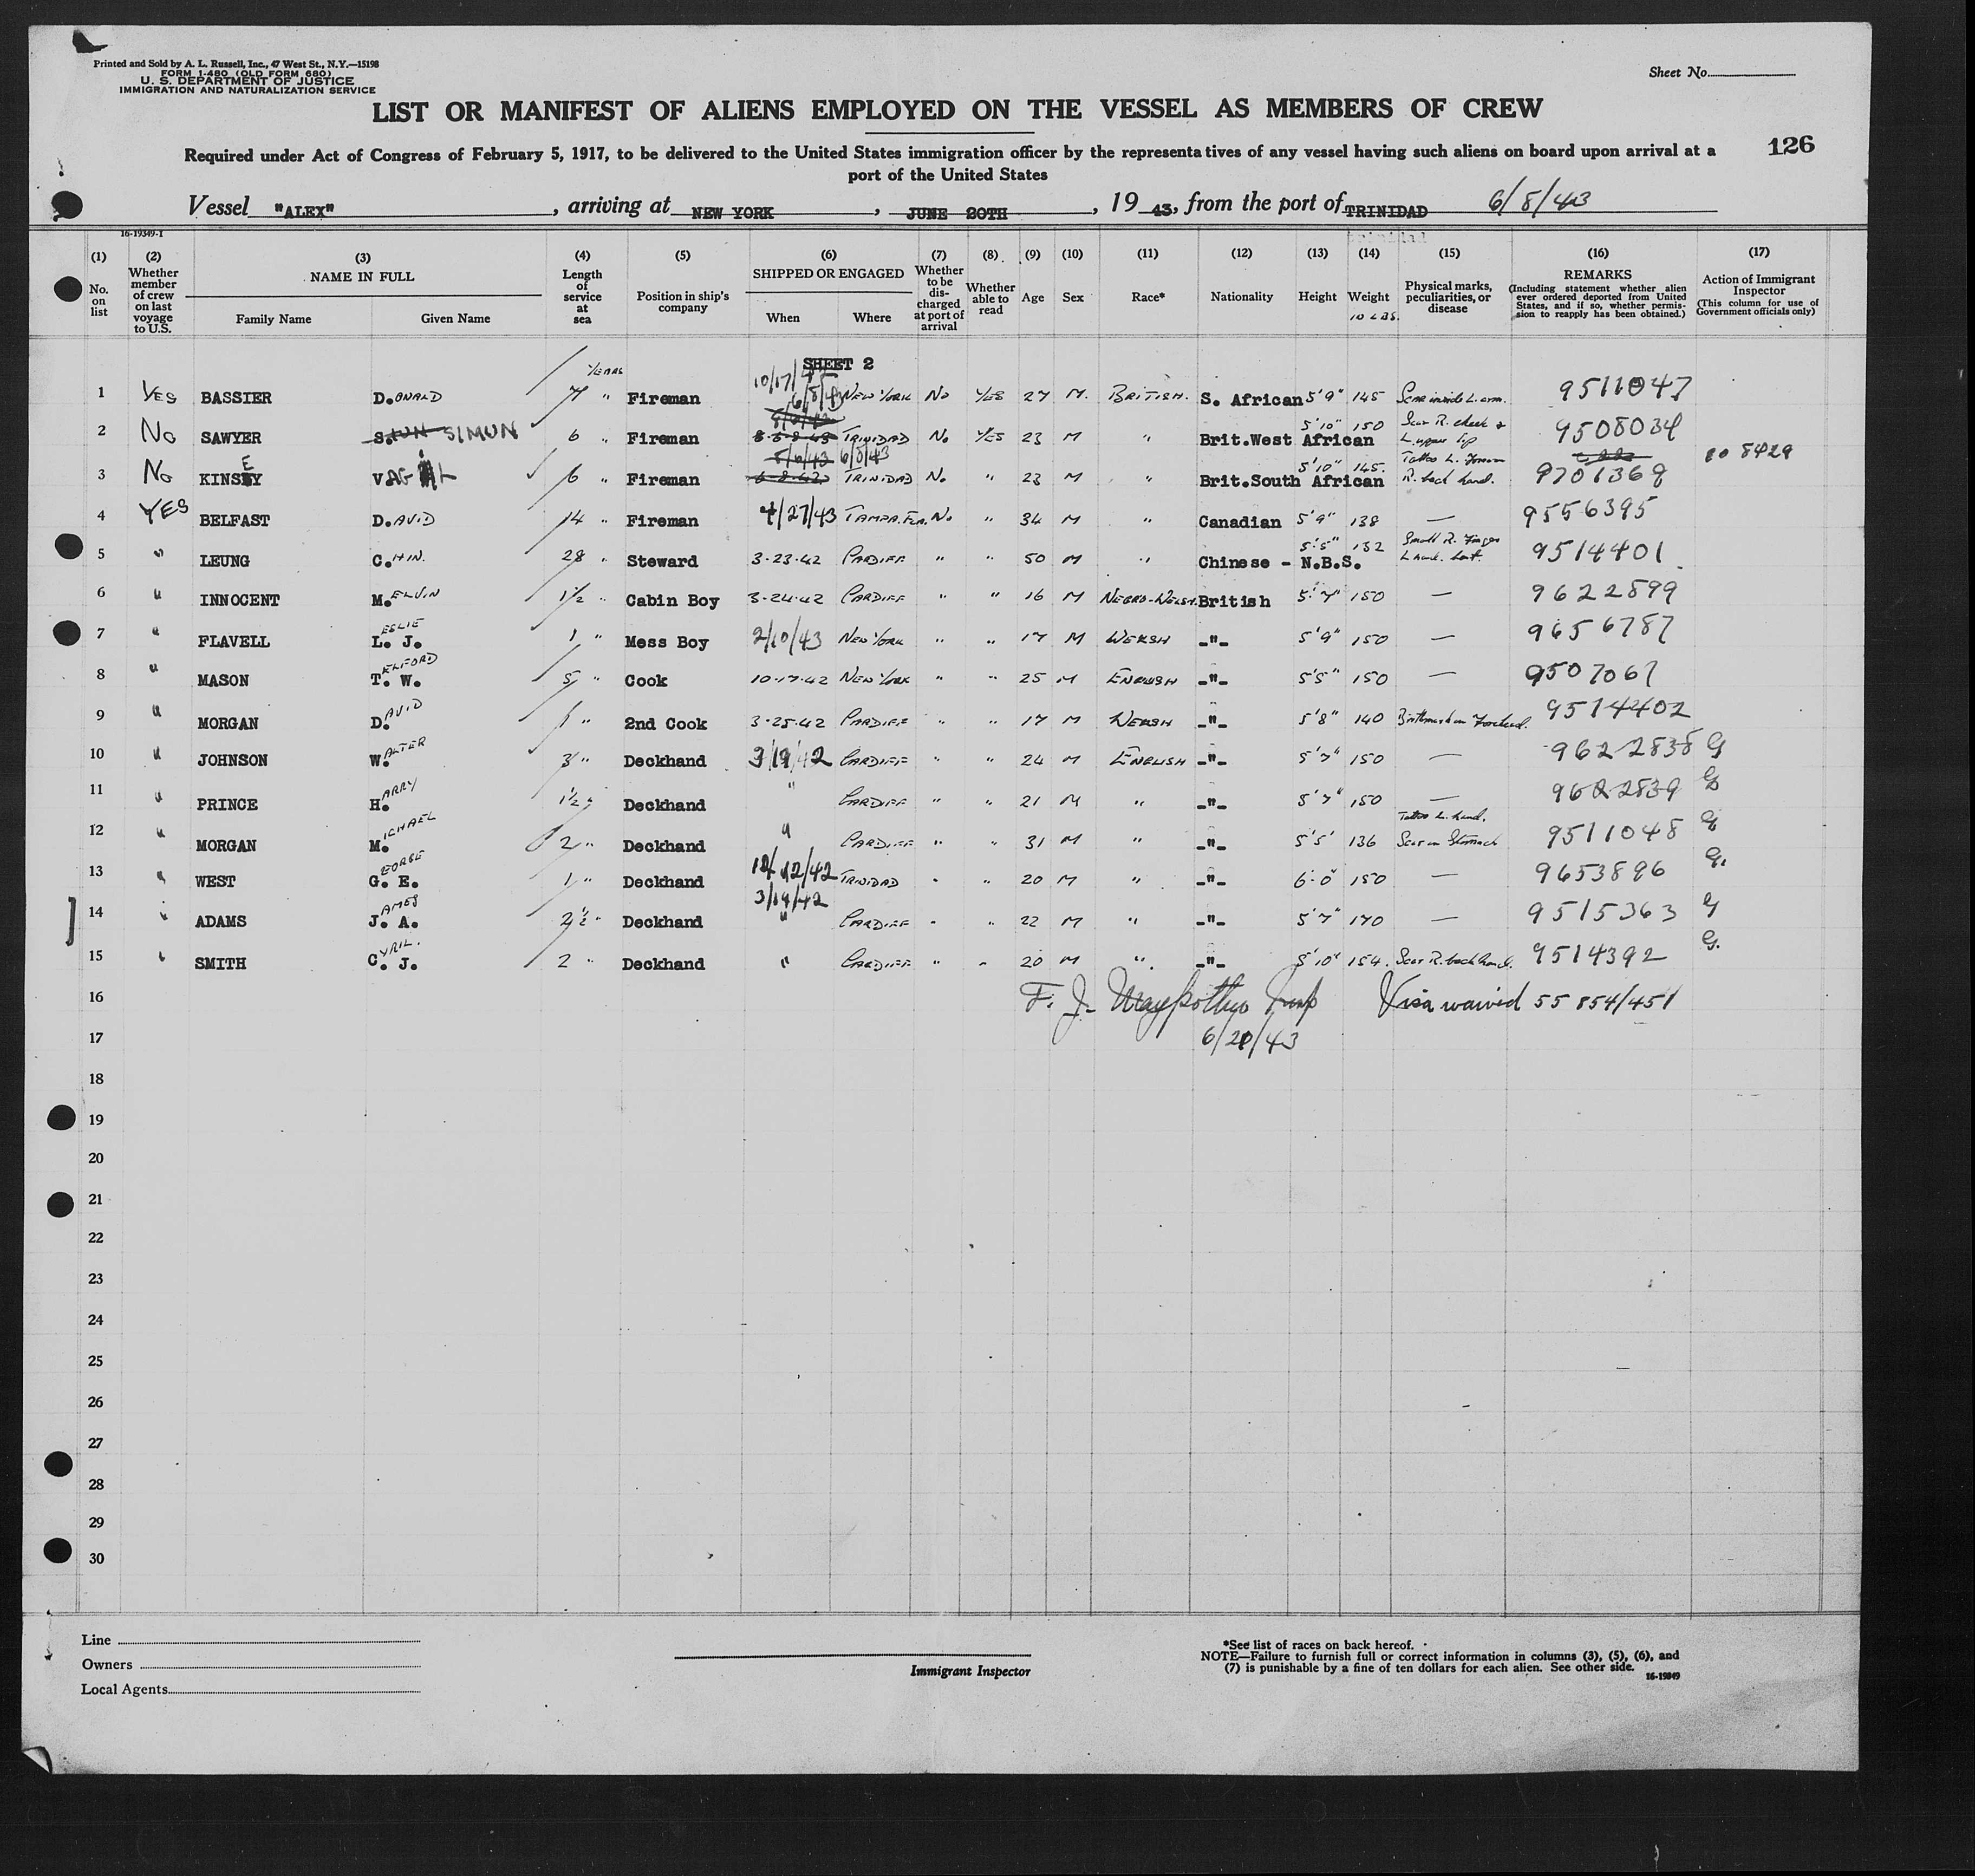 Printed and Sold by A. L. Russell, Inc., 47 West St., N.Y.—15198
FORM I-480 (OLD FORM 680)
U. S. DEPARTMENT OF JUSTICE
IMMIGRATION AND NATURALIZATION SERVICE
Sheet No.
LIST OR MANIFEST OF ALIENS EMPLOYED ON THE VESSEL AS MEMBERS OF CREW
126
Required under Act of Congress of February 5, 1917, to be delivered to the United States immigration officer by the representatives of any vessel having such aliens on board upon arrival at a
port of the United States
Vessel "ALEX", arriving at NEW YORK, JUNE 20TH, 19 43, from the port of TRINIDAD 6/8/43
16-19349-1
(1) No. on list
(2) Whether member of crew on last voyage to U.S.
(3) NAME IN FULL Family Name Given Name
(4) Length of service at sea
(5) Position in ship's company
(6) SHIPPED OR ENGAGED When Where
(7) Whether to be discharged at port of arrival
(8) Whether able to read
(9) Age
(10) Sex
(11) Race*
(12) Nationality
(13) Height
(14) Weight
(15) Physical marks, peculiarities, or disease
(16) REMARKS (Including statement whether alien ever ordered deported from United States, and if so, whether permission to reapply has been obtained.)
(17) Action of Immigrant Inspector (This column for use of Government officials only)
SHEET 2
YEARS
1 YES BASSIER D.ONALD 7 " Fireman 10/17/42 NEW YORK No YES 27 M. BRITISH. S. African 5'9" 145 Scar inside L. arm. 9511047
2 No SAWYER SIMON 6 " Fireman 6/8/43 TRINIDAD No YES 23 M " Brit.West African 5'10" 150 Scar R. cheek & L. upper lip 9508034
3 No KINSEY 6 " Fireman 6/8/43 TRINIDAD No " 23 M " Brit.South African 5'10" 145. R. back hand. 9701368
4 YES BELFAST D.AVID 14 " Fireman 4/27/43 TAMPA.FLA. No " 34 M " Canadian 5'9" 138 — 9556395
5 " LEUNG C.HIN. 28 " Steward 3-23-42 CARDIFF " " 50 M " Chinese - N.B.S. 5'5" 132 Small R. Finger 9514401
6 " INNOCENT M.ELVIN 1½ " Cabin Boy 3-24-42 CARDIFF " " 16 M NEGRO-WELSH. British 5'7" 150 — 9622899
7 " FLAVELL L.ESLIE J. 1 " Mess Boy 2/10/43 NEW YORK " " 17 M WELSH -"- 5'9" 150 — 9656787
8 " MASON T.ELFORD W. 5 " Cook 10-17-42 NEW YORK " " 25 M ENGLISH -"- 5'5" 150 — 9507067
9 " MORGAN D.AVID 1 " 2nd Cook 3-25-42 CARDIFF " " 17 M WELSH -"- 5'8" 140 Birthmark on Forehead. 9514402
10 " JOHNSON W.ALTER 3 " Deckhand 3/19/42 CARDIFF " " 24 M ENGLISH -"- 5'7" 150 — 9622838 G
11 " PRINCE H.ARRY 1½ " Deckhand " CARDIFF " " 21 M " -"- 5'7" 150 — 9622839 G
12 " MORGAN M.ICHAEL 2 " Deckhand " CARDIFF " " 31 M " -"- 5'5" 136 Tattoo L. hand. Scar on Stomach 9511048 G
13 " WEST G.EORGE E. 1 " Deckhand 12/12/42 TRINIDAD " " 20 M " -"- 6'0" 150 — 9653896 G.
14 " ADAMS J.AMES A. 2½ " Deckhand 3/19/42 " CARDIFF " " 22 M " -"- 5'7" 170 — 9515363 G
15 " SMITH C.YRIL. J. 2 " Deckhand " CARDIFF " " 20 M " -"- 5'10" 154. Scar R. back hand. 9514392 G.
16 F. J. Visa waived 55854/451
17 6/20/43
18
19
20
21
22
23
24
25
26
27
28
29
30
Line
Owners
Local Agents
Immigrant Inspector
*See list of races on back hereof.
NOTE—Failure to furnish full or correct information in columns (3), (5), (6), and
(7) is punishable by a fine of ten dollars for each alien. See other side.
16-19349